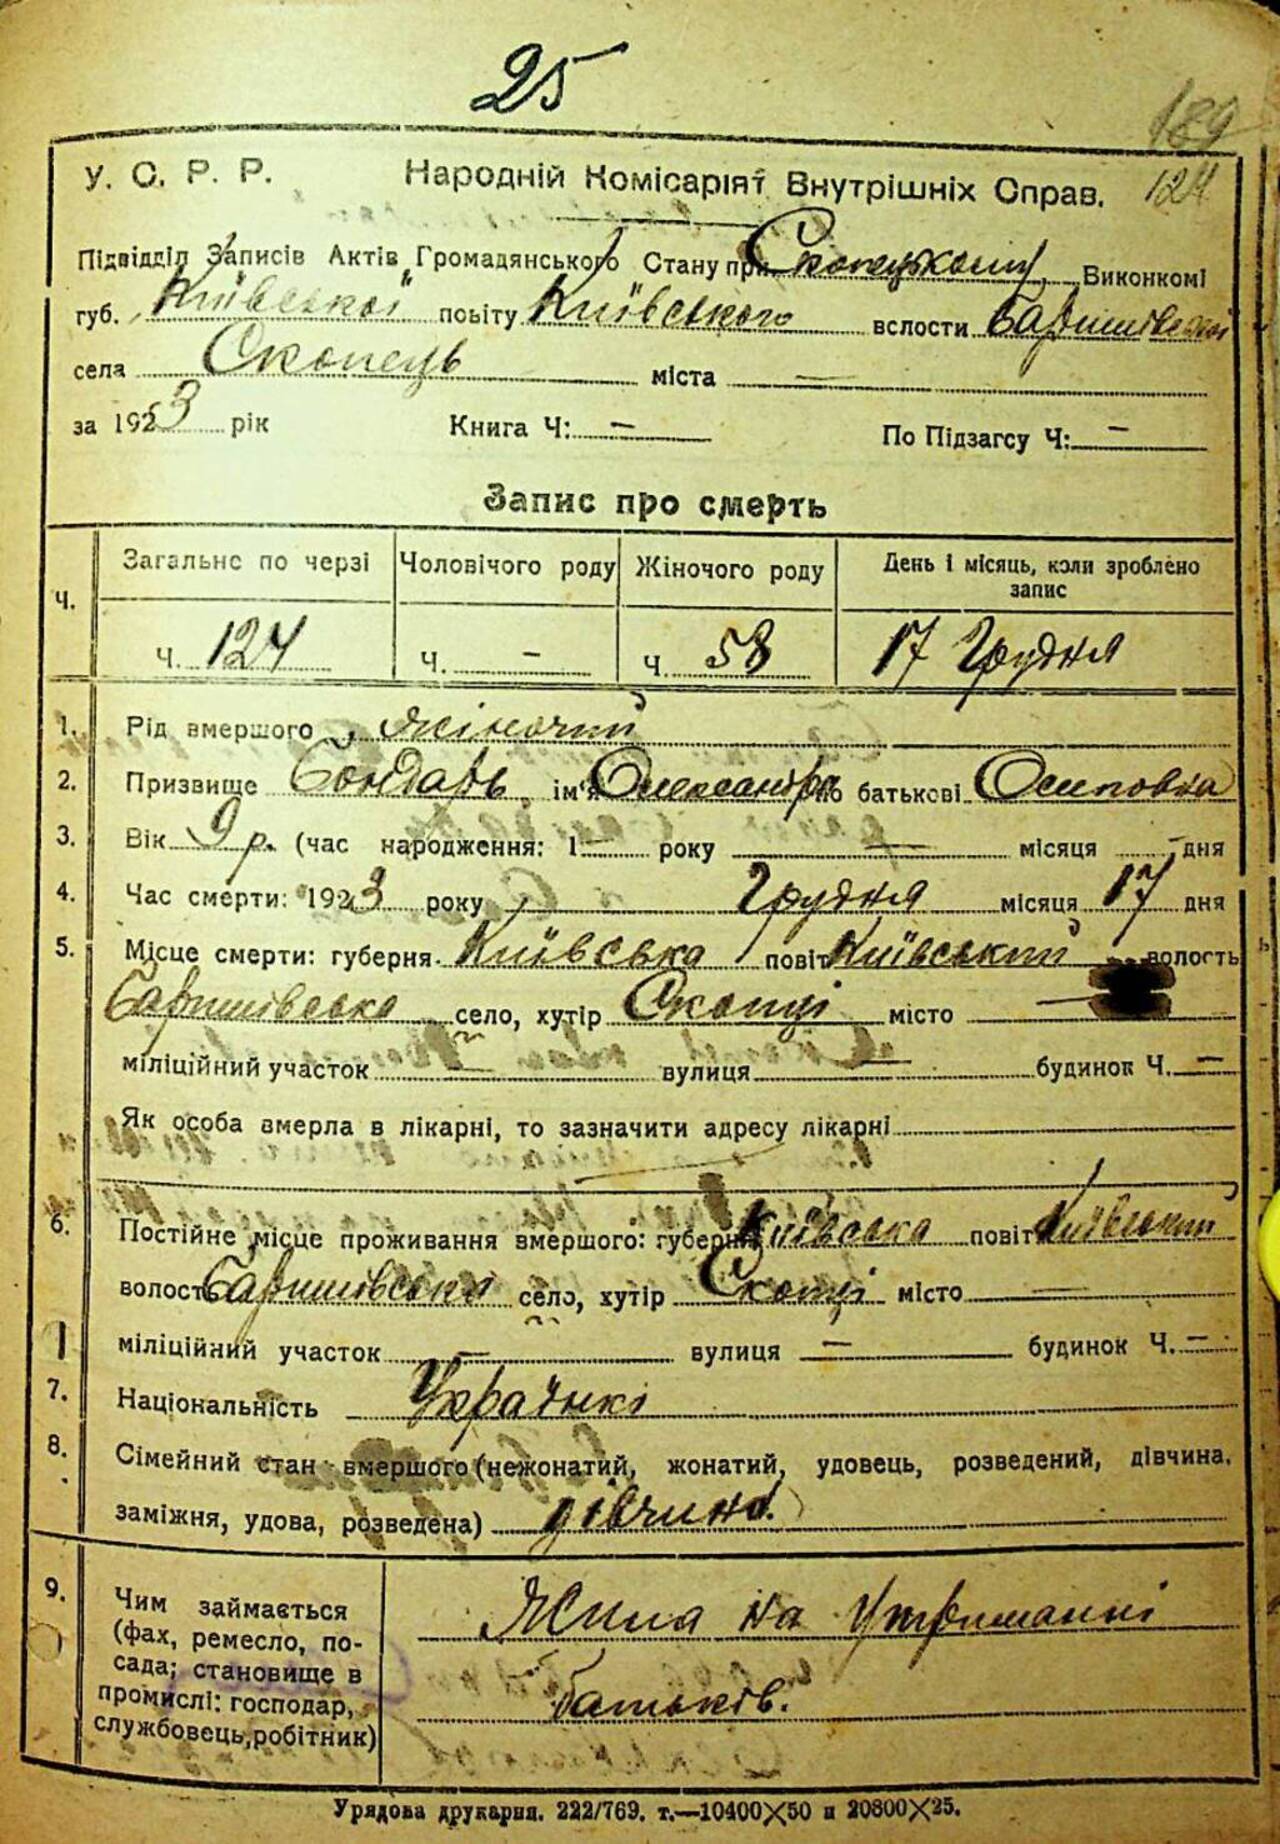 25
189
У. С. Р. Р. Народній Комісаріят Внутрішніх Справ. 124
Підвідділ Записів Актів Громадянського Стану при Скопецькому Виконкомі
губ. Київської повіту Київського вслости Баришівської
села Скопець міста —
за 1923 рік Книга Ч: — По Підзагсу Ч: —
Запис про смерть
Загальне по черзі Чоловічого роду Жіночого роду День і місяць, коли зроблено
запис
Ч.
Ч. 124 Ч. — Ч 58 17 Грудня
1. Рід вмершого жіночий
2. Призвище Бондарь ім'я Олександра по батькові Осиповна
3. Вік 9 р. (час народження: 1— року — місяця — дня
4. Час смерти: 1923 року Грудня місяця 17 дня
5. Місце смерти: губерня Київська повіт Київський волость
Баришівська село, хутір Скопці місто —
міліційний участок — вулиця — будинок Ч. —
Як особа вмерла в лікарні, то зазначити адресу лікарні
6. Постійне місце проживання вмершого: губерня Київська повіт Київський
волость Баришівська село, хутір Скопці місто —
міліційний участок — вулиця — будинок Ч. —
7. Національність Українкі
8. Сімейний стан вмершого (нежонатий, жонатий, удовець, розведений, дівчина,
заміжня, удова, розведена) дівчина.
9. Чим займається
(фах, ремесло, по-
сада; становище в
промислі: господар,
службовець, робітник)
Жила на утриманні
батьків.
Урядова друкарня. 222/769. т.—10400X50 и 20800X25.